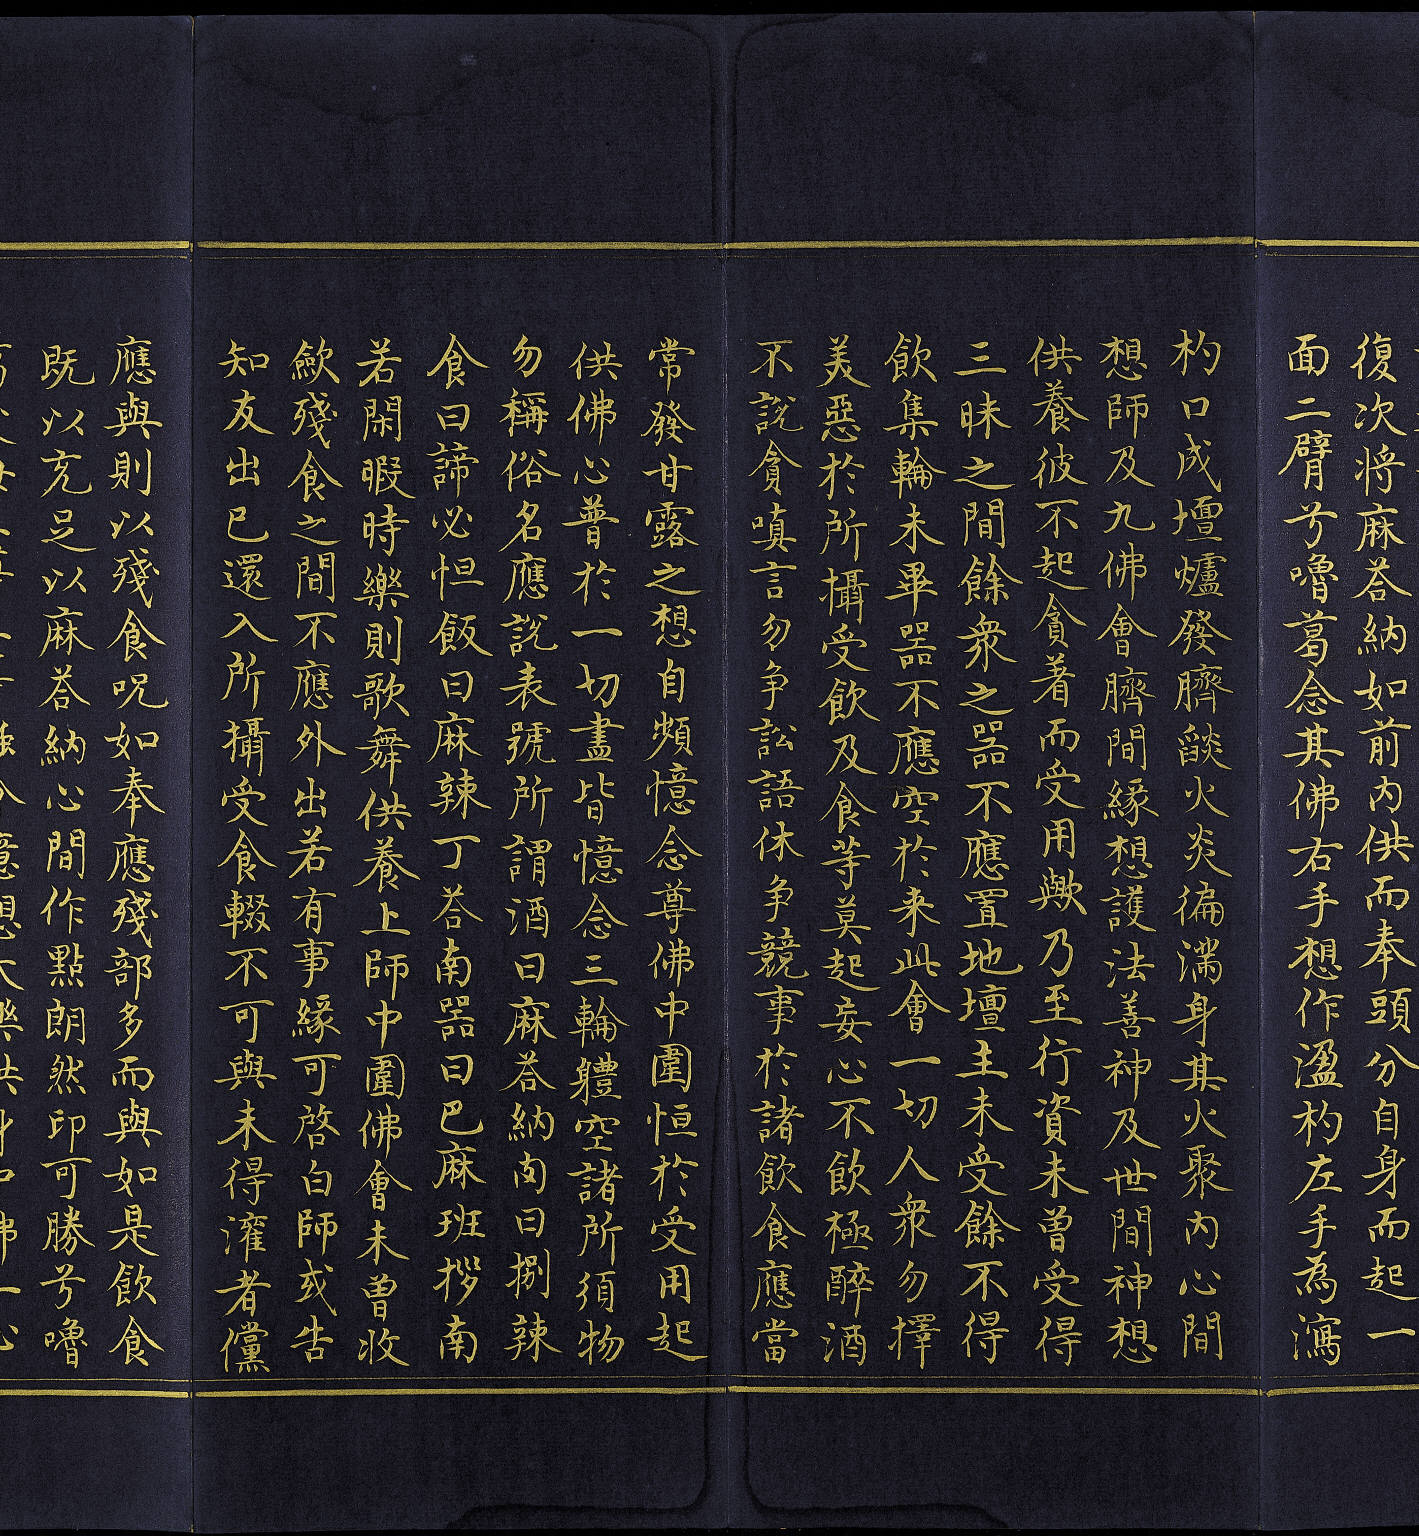 復次將麻荅納如前內供而奉頭分自身而起一
面二臂兮嚕葛念其佛右手想作溋杓左手為瀉
杓口成壇爐發臍燄火炎徧滿身其火聚內心間
想師及九佛會臍間緣想護法善神及世間神想
供養彼不起貪著而受用歟乃至行資未曾受得
三昧之間餘衆之器不應置地壇主未受餘不得
飲集輪未畢器不應空於来此會一切人衆勿擇
美惡於所攝受飲及食等莫起妄心不飲極醉酒
不說貪嗔言勿争訟語休争競事於諸飲食應當
常發甘露之想自頻憶念尊佛中圍恒於受用起
供佛心普於一切盡皆憶念三輪軆空諸所須物
勿稱俗名應說表號所謂酒曰麻荅納肉曰捌辣
食曰諦必怛飯曰麻辣丁荅南器曰巴麻班拶南
若閑暇時樂則歌舞供養上師中圍佛會未曾收
歛殘食之間不應外出若有事緣可啓白師或告
知友出已還入所攝受食輟不可與未得灌者儻
應與則以殘食呪如奉應殘部多而與如是飲食
既以充足以麻荅納心間作點朗然印可勝兮嚕